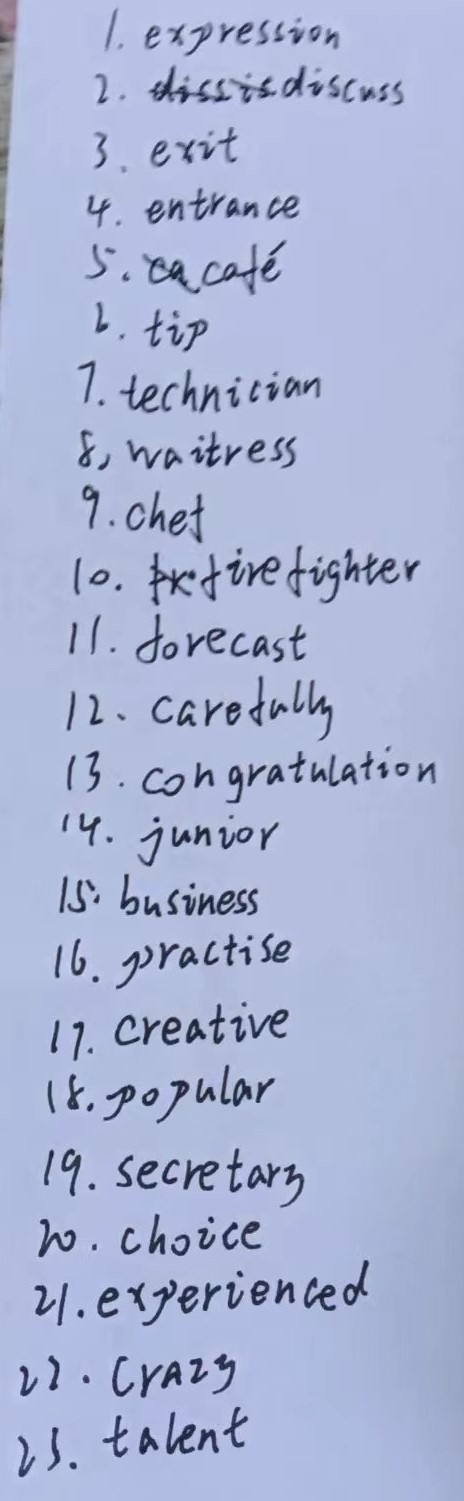 1. expression
2. discuss
3. exit
4. entrance
5. café
6. tip
7. technician
8, waitress
9. chef
10. firefighter
11. forecast
12. carefully
13. congratulation
14. junior
15. business
16. practise
17. creative
18. popular
19. secretary
20. choice
21. experienced
22. crazy
23. talent